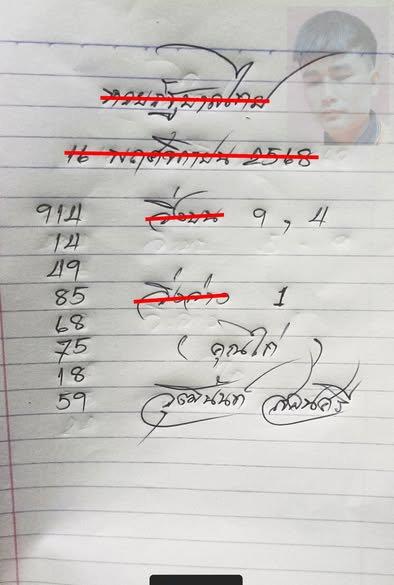 หวยรัฐบาลไทย
16 พฤศจิกายน 2568
914 วิ่งบน 9 , 4
14
49
85 วิ่งล่าง 1
68
75 ( คุณไก่ )
18
59 วุฒินันท์